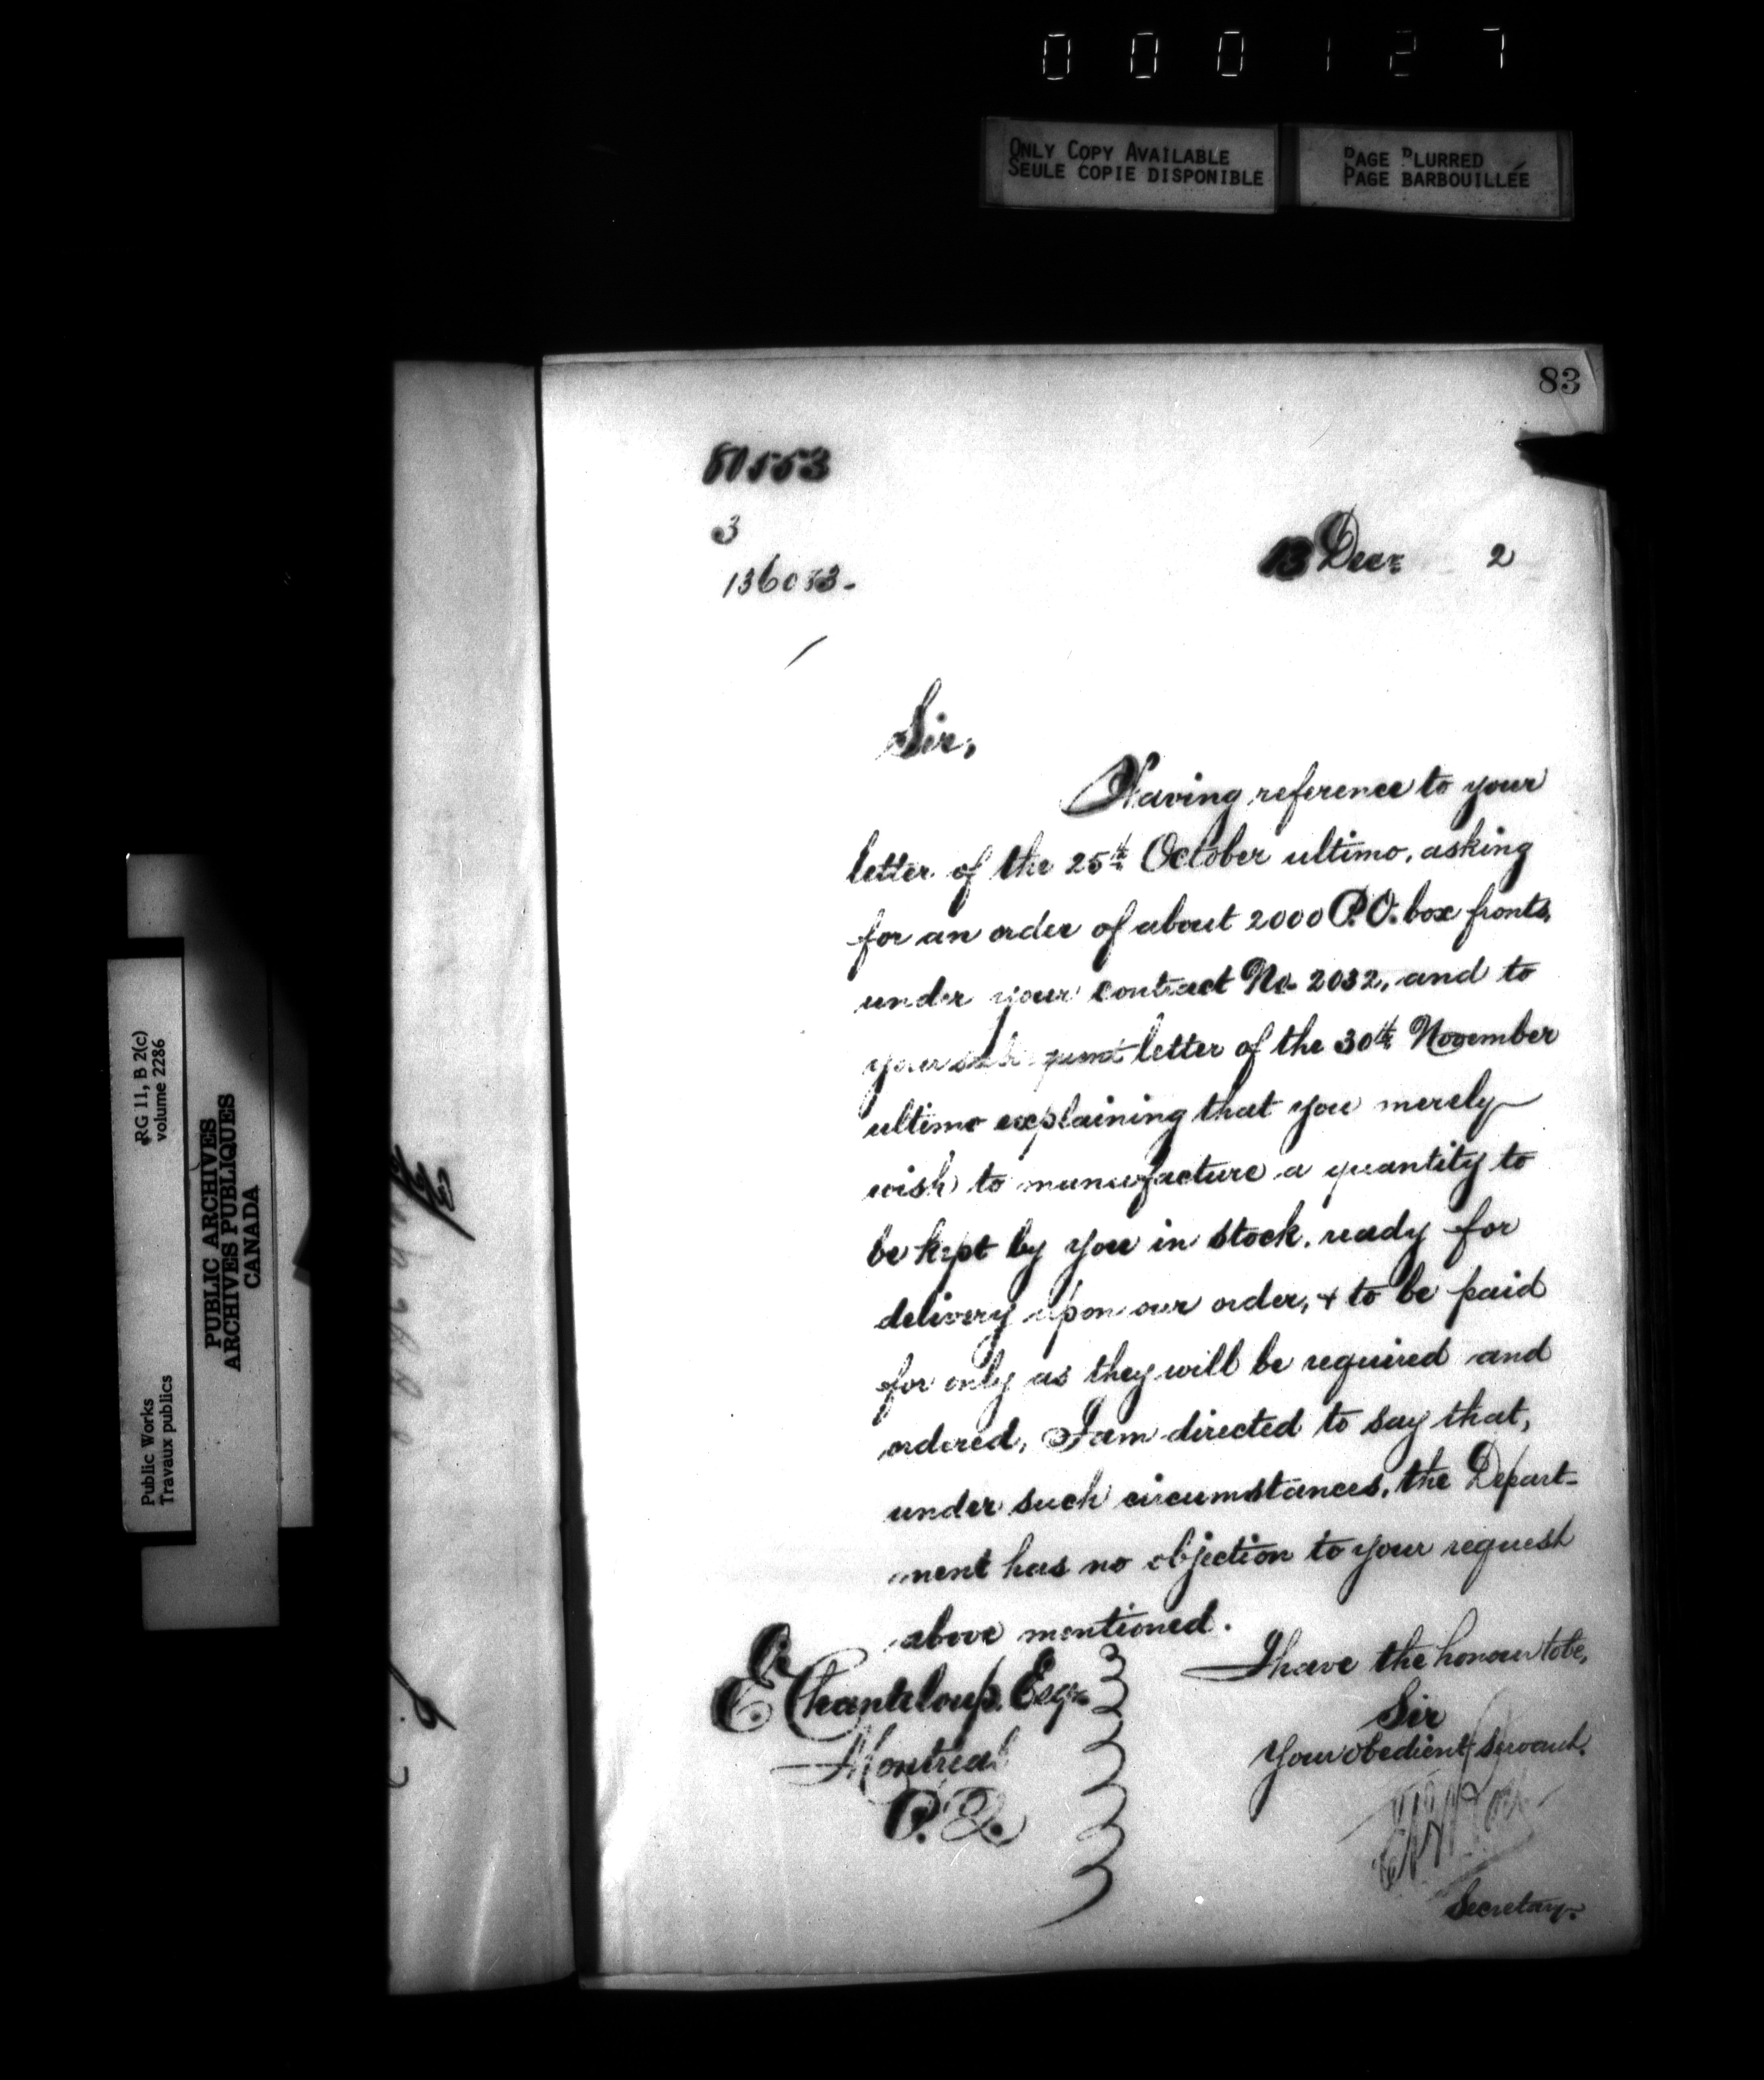 000127
ONLY COPY AVAILABLE
SEULE COPIE DISPONIBLE
PAGE BLURRED
PAGE BARBOUILLÉE
RG 11, B 2(c)
volume 2286
Public Works
Travaux publics
PUBLIC ARCHIVES
ARCHIVES PUBLIQUES
CANADA
83
3
13 Decr 2
Sir,
Having reference to your
letter of the 25th October ultimo, asking
for an order of about 2000 P.O. box fronts,
under your contract No. 2032, and to
your subsequent letter of the 30th November
ultimo explaining that you merely
wish to manufacture a quantity to
be kept by you in stock, ready for
delivery upon our order, + to be paid
for only as they will be required and
ordered, I am directed to say that,
under such circumstances, the Depart-
ment has no objection to your request
above mentioned.
I have the honour to be,
Sir
Your obedient servant.
Secretary.
E. Chanteloup. Esqr.
Montreal
P.Q.